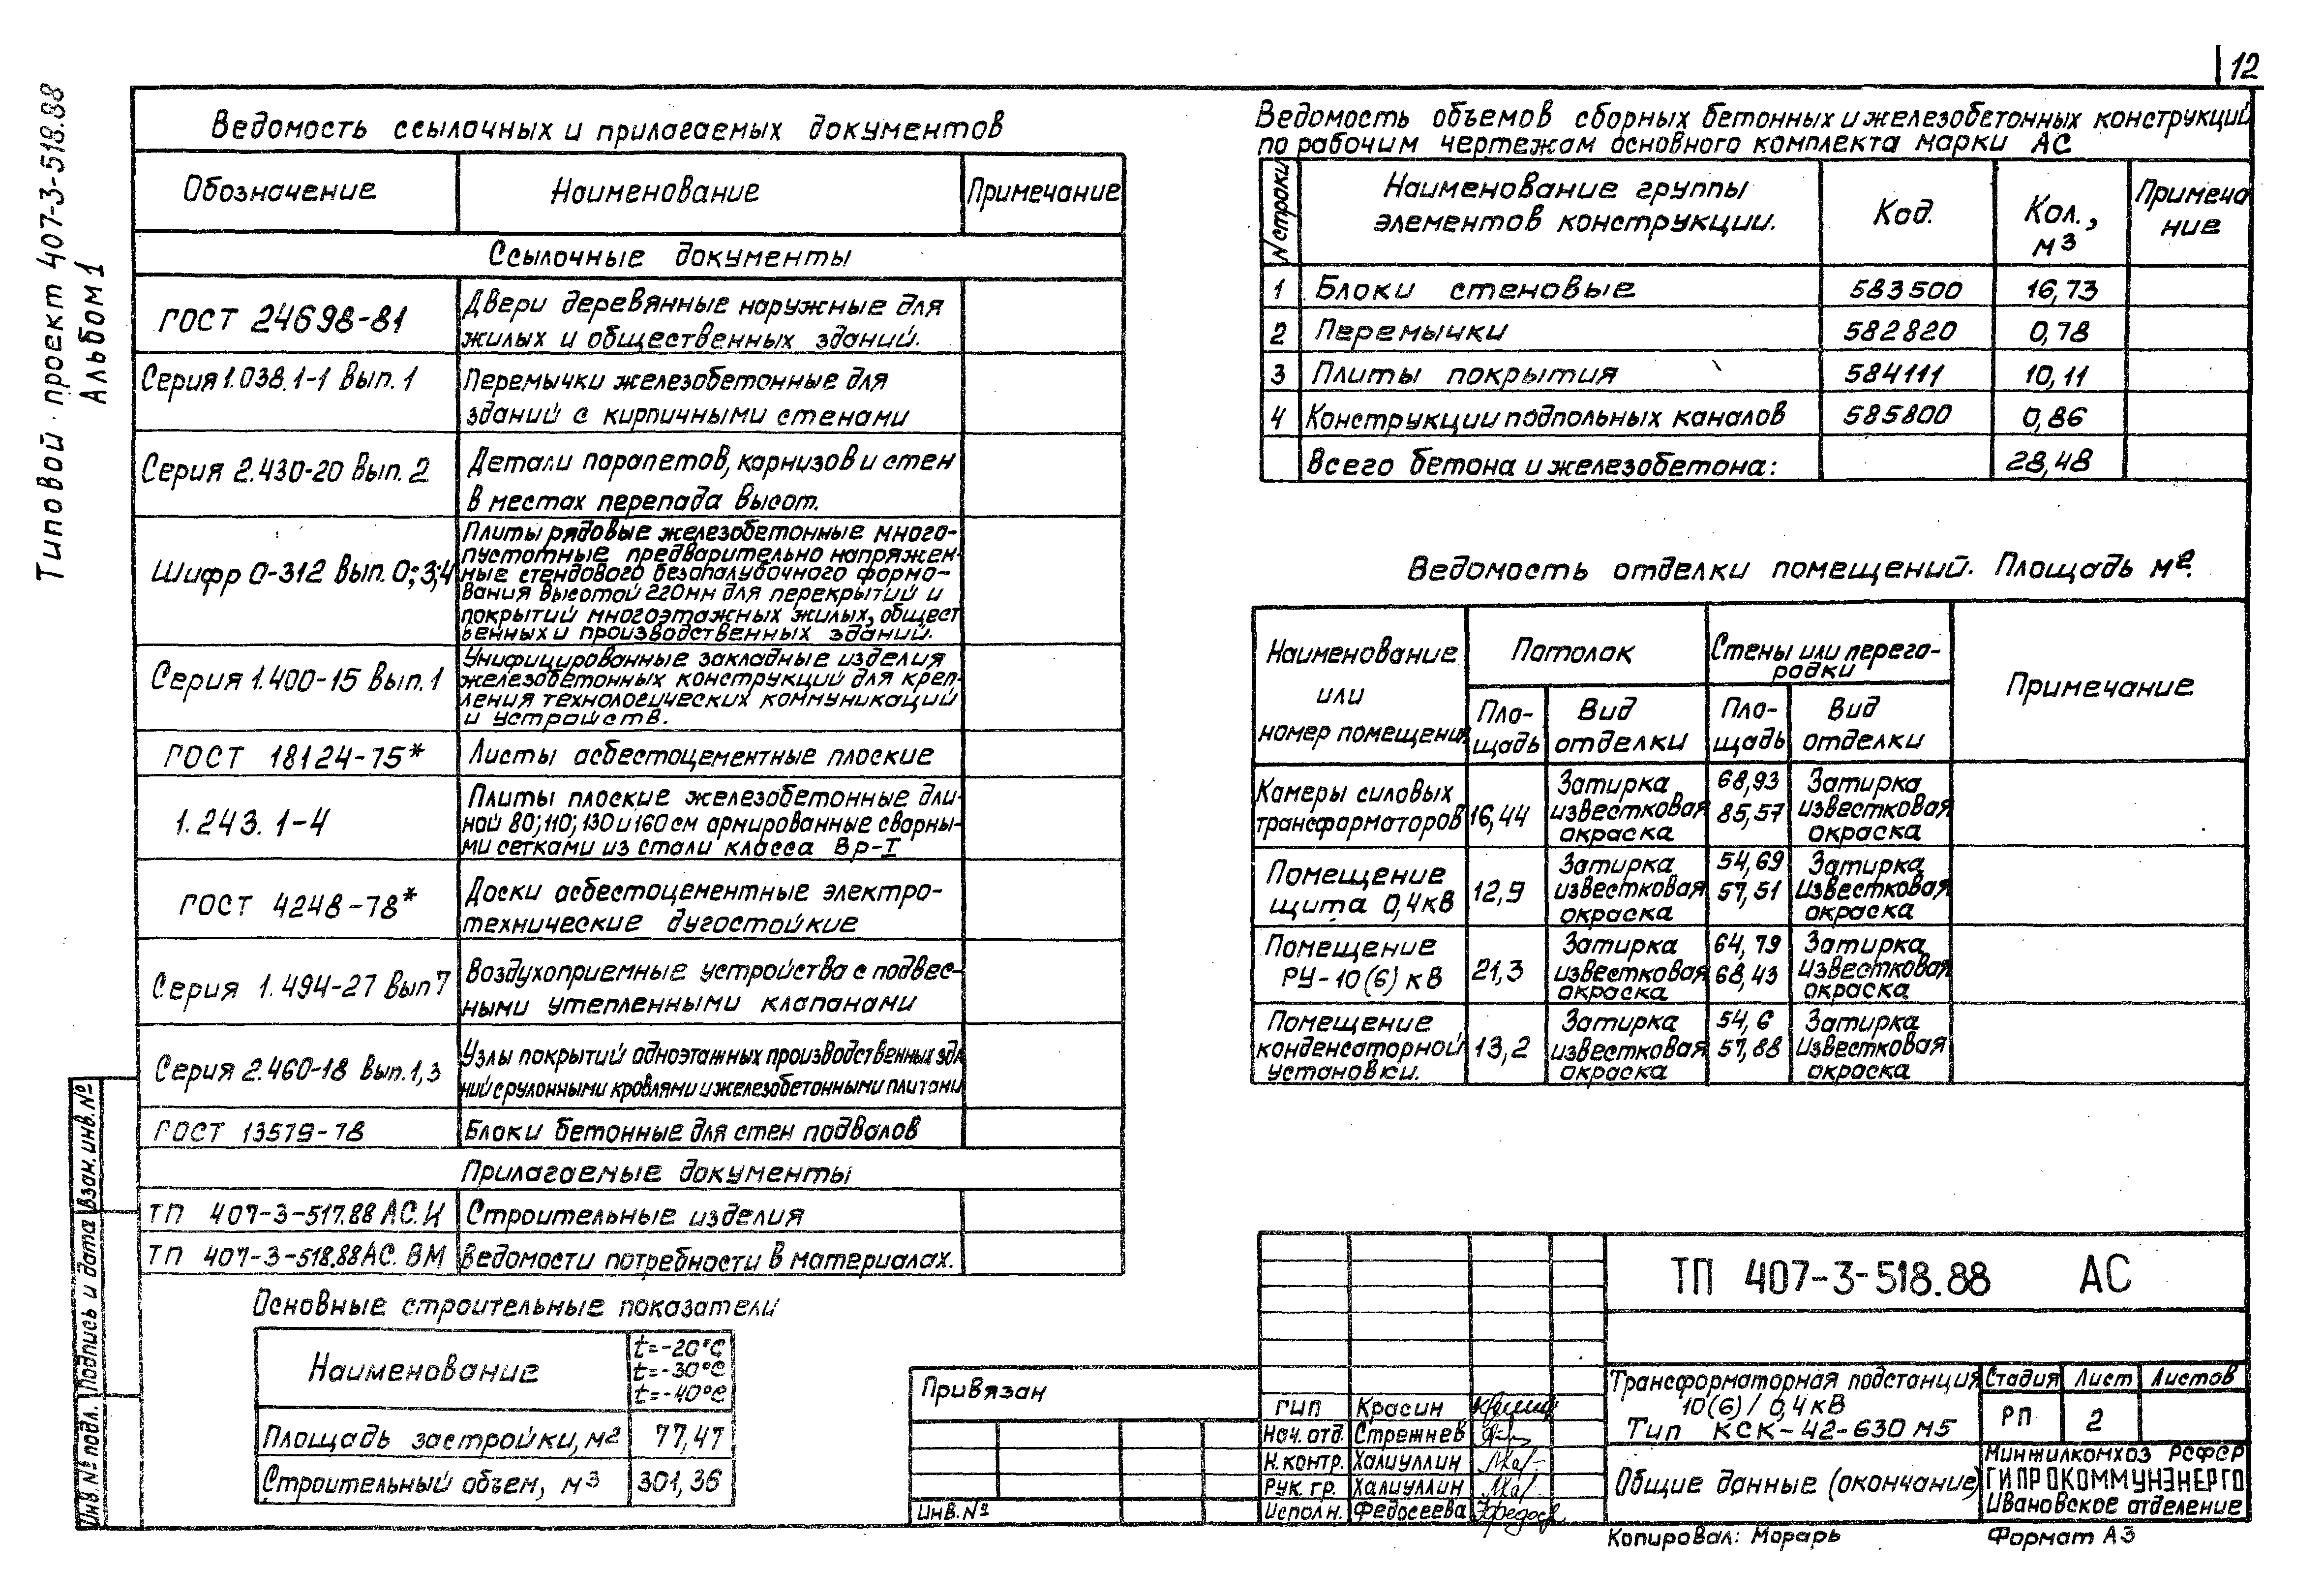 12
Типовой проект 407-3-518.88
Альбом 1
Ведомость ссылочных и прилагаемых документов
Обозначение Наименование Примечание
Ссылочные документы
ГОСТ 24698-81 Двери деревянные наружные для
жилых и общественных зданий.
Серия 1.038.1-1 Вып. 1 Перемычки железобетонные для
зданий с кирпичными стенами
Серия 2.430-20 Вып. 2 Детали парапетов, карнизов и стен
в местах перепада высот.
Шифр 0-312 Вып. 0;3;4 Плиты рядовые железобетонные много-
пустотные предварительно напряжен-
ные стендового безопалубочного формо-
вания высотой 220мм для перекрытий и
покрытий многоэтажных жилых, общест
венных и производственных зданий.
Серия 1.400-15 Вып. 1 Унифицированные закладные изделия
железобетонных конструкций для креп-
ления технологических коммуникаций
и устройств.
ГОСТ 18124-75* Листы асбестоцементные плоские
1.243.1-4 Плиты плоские железобетонные дли-
ной 80; 110; 130 и 160 см армированные сварны-
ми сетками из стали класса Вр-I
ГОСТ 4248-78* Доски асбестоцементные электро-
технические дугостойкие
Серия 1.494-27 Вып 7 Воздухоприемные устройства с подвес-
ными утепленными клапанами
Серия 2.460-18 Вып. 1,3 Узлы покрытий одноэтажных производственных зда
ний с рулонными кровлями и железобетонными плитами
ГОСТ 13579-78 Блоки бетонные для стен подвалов
Прилагаемые документы
ТП 407-3-517.88 АС.И Строительные изделия
ТП 407-3-518.88 АС. ВМ Ведомости потребности в материалах.
Основные строительные показатели
Наименование t=-20°С
t=-30°С
t=-40°С
Площадь застройки, м2 77,47
Строительный объем, м3 301,36
Ведомость объемов сборных бетонных и железобетонных конструкций
по рабочим чертежам основного комплекта марки АС
N строки Наименование группы
элементов конструкции. Код. Кол.,
м3 Примеча
ние
1 Блоки стеновые 583500 16,73
2 Перемычки 582820 0,78
3 Плиты покрытия 584111 10,11
4 Конструкции подпольных каналов 585800 0,86
Всего бетона и железобетона: 28,48
Ведомость отделки помещений. Площадь м2.
Наименование
или
номер помещения Потолок Стены или перего-
родки Примечание
Пло-
щадь Вид
отделки Пло-
щадь Вид
отделки
Камеры силовых
трансформаторов 16,44 Затирка
известковая
окраска 68,93
85,57 Затирка
известковая
окраска
Помещение
щита 0,4кВ 12,9 Затирка
известковая
окраска 54,69
57,51 Затирка
известковая
окраска
Помещение
РУ-10(6) кВ 21,3 Затирка
известковая
окраска 64,79
68,43 Затирка
известковая
окраска
Помещение
конденсаторной
установки. 13,2 Затирка
известковая
окраска 54,6
57,88 Затирка
известковая
окраска
Взам. инв. №
Подпись и дата
Инв. № подл.
Привязан
Инв. №
ТП 407-3-518.88 АС
ГИП Красин
Нач. отд. Стрежнев
Н. контр. Халиуллин
Рук. гр. Халиуллин
Исполн. Федосеева
Трансформаторная подстанция
10(6) / 0,4 кВ
Тип КСК-42-630 М5
Стадия Лист Листов
РП 2
Общие данные (окончание)
Минжилкомхоз РСФСР
ГИПРОКОММУНЭНЕРГО
Ивановское отделение
Копировал: Морарь Формат А3